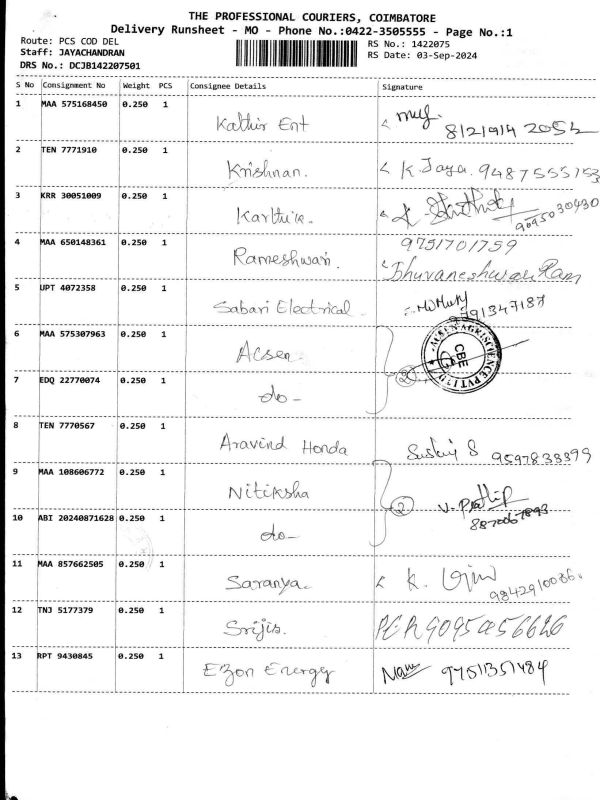 THE PROFESSIONAL COURIERS, COIMBATORE
Delivery Runsheet - MO - Phone No.:0422-3505555 - Page No.:1
Route: PCS COD DEL
Staff: JAYACHANDRAN
DRS No.: DCJB142207501
RS No.: 1422075
RS Date: 03-Sep-2024
S No Consignment No Weight PCS Consignee Details Signature
1 MAA 575168450 0.250 1 Kathir Ent
2 TEN 7771910 0.250 1 Krishnan. K. Jaya. 9487555153
3 KRR 30051009 0.250 1 Karthik. 9095030430
4 MAA 650148361 0.250 1 Rameshwari. 9751701759
Bhuvaneshwari Ram
5 UPT 4072358 0.250 1 Sabari Electrical
6 MAA 575307963 0.250 1 Acsen ACSEN AGRISCIENCE PVT LTD CBE
7 EDQ 22770074 0.250 1 do-
8 TEN 7770567 0.250 1 Aravind Honda 9597833399
9 MAA 108606772 0.250 1 Nitiksha
10 ABI 20240871628 0.250 1 do- 2 V. Prathip
8870067893
11 MAA 857662505 0.250 1 Saranya. K. 9842910086.
12 TNJ 5177379 0.250 1 Srijis. 9095056626
13 RPT 9430845 0.250 1 Ezon Energy 9751351484